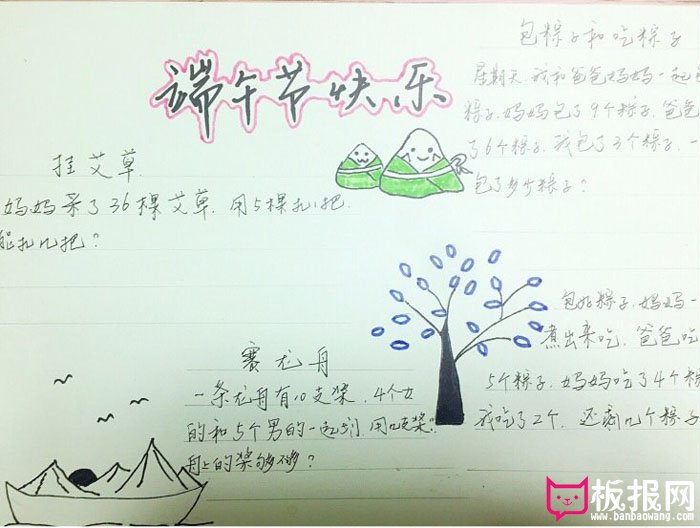 端午节快乐
包粽子和吃粽子
星期天,我和爸爸妈妈一起包
粽子,妈妈包了9个粽子,爸爸
了6个粽子,我包了3个粽子,一
包了多少粽子?
挂艾草
妈妈采了36棵艾草,用5棵扎1把,
能扎几把?
包好粽子,妈妈
煮出来吃,爸爸吃
5个粽子,妈妈吃了4个粽
我吃了2个,还剩几个粽子
赛龙舟
一条龙舟有10支桨,4个女
的和5个男的一起划,用几支桨?
舟上的桨够不够?
板报网
www.banbaowang.com